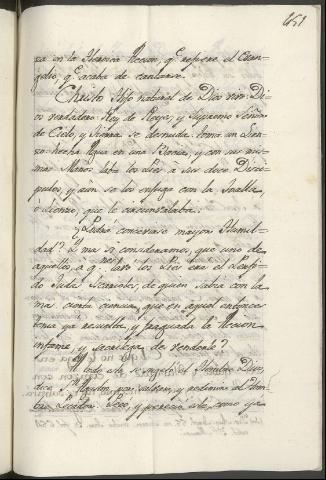 ra en la Heroica Accion, q.e refiere el Evan-
gelio, q.e acaba de cantarse.
Christo Hijo natural de Dios vivo: Di-
os verdadero: Rey de Reyes, y Supremo Señor
de Cielo, y Tierra se desnuda: toma un Lien-
zo: hecha Agua en una, y con sus mis-
mas Manos labó los Pies à sus doce Disci-
pulos, y aún se los enjugó con la Toalla,
ó Lienzo, que le circundaba.
¿Podrà concevirse mayor Humil-
dad? Y mas si consideramos, que uno de
aquellos, à q.nes lavó los Pies era el Perfi-
do Judas Scariotes, de quien sabia con la
mas cierta ciencia, que en aquel entonces
tenia yà resuelta, y fraguada la Accion
infame, y sacrilega de venderle?
A todo esto se sujetó el
dice S.n Agustin, por salvar, y redimir al Hom-
bre Pecador. Pero, y parecia esto, como ya